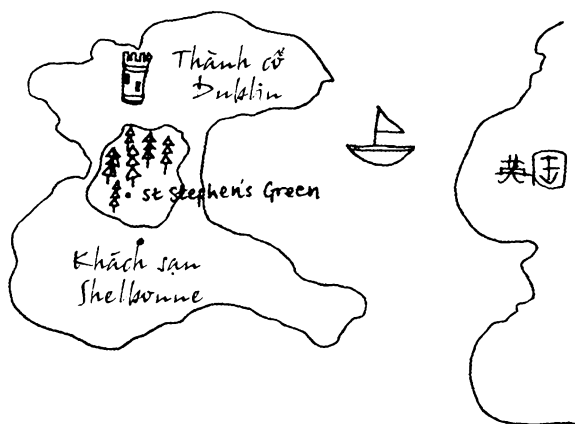 Thành cổ
Dublin
st stephen's Green
Khách sạn
Shelbonne
英